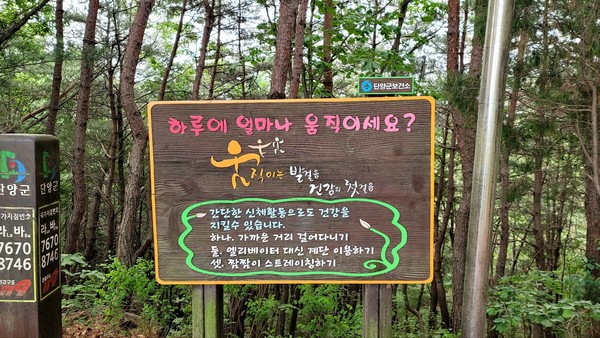 단양군보건소
하루에 얼마나 움직이세요?
움직이는 발걸음
건강의 첫걸음
간단한 신체활동으로도 건강을
지킬수 있습니다.
하나. 가까운 거리 걸어다니기
둘. 엘리베이터 대신 계단 이용하기
셋. 짬짬이 스트레칭하기
단양군
가지점번호
라.바..
7670
8746
단양군
국가지점번호
라, 바
7670
8746